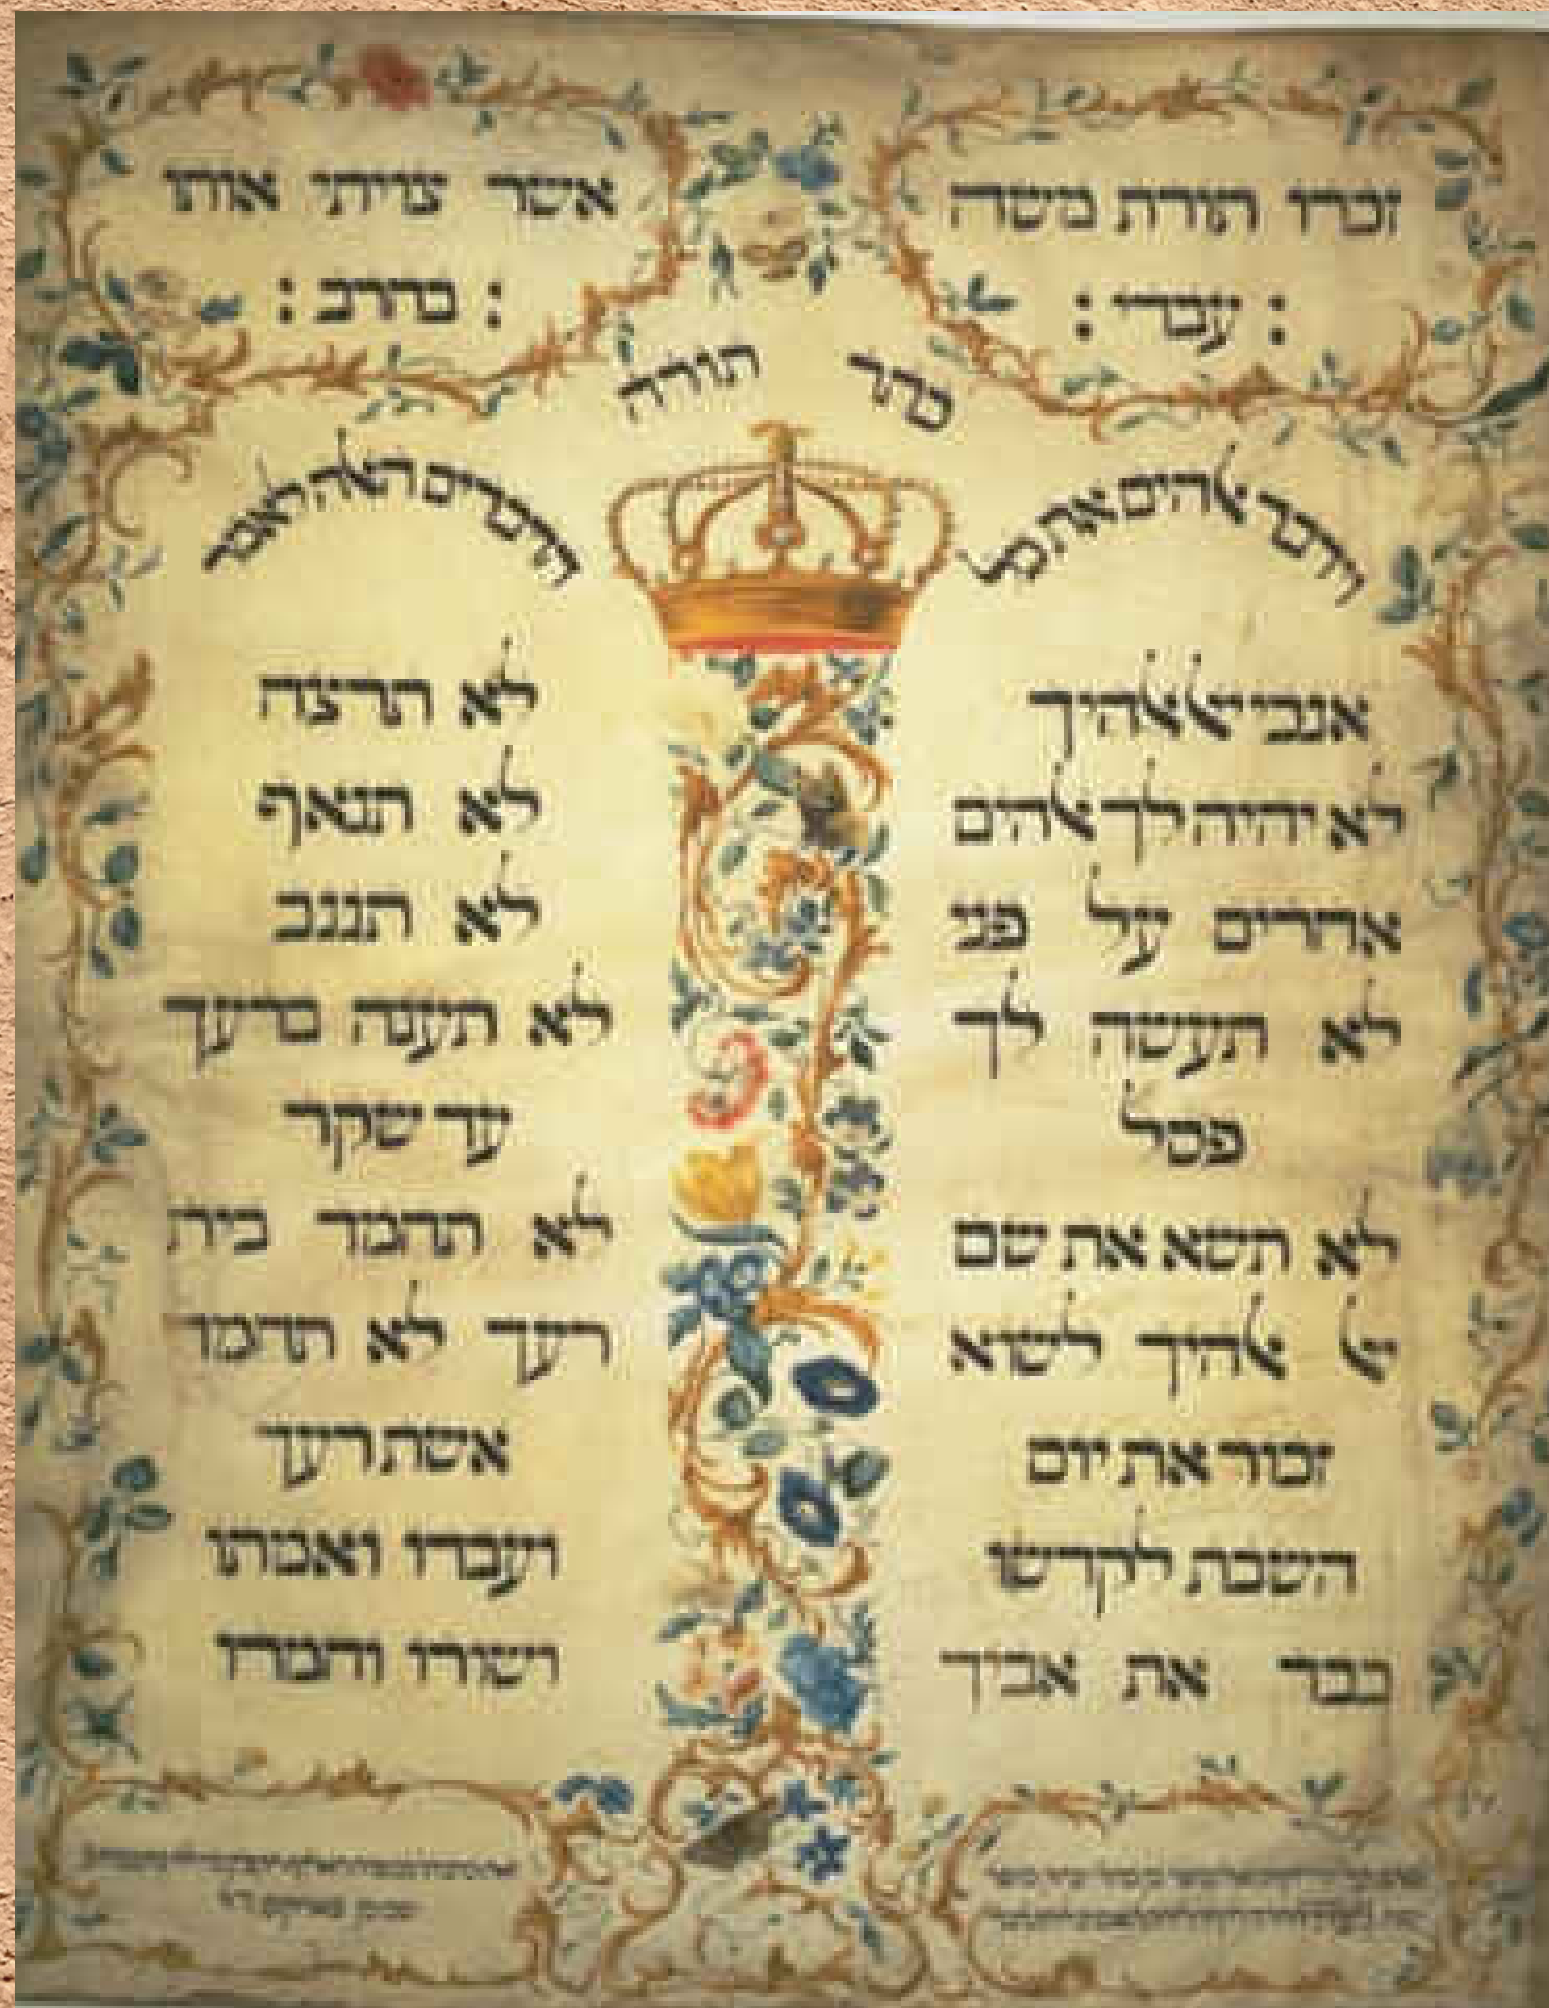 זכרו תורת משה
: עבדי :
אשר צויתי אותו
: בחרב :
כתר תורה
וידבר ﭏהים את כל
הדברים הﭏה לאמר
אנכי יﭏ ﭏהיך
לא יהיה לך ﭏהים
אחרים על פני
לא תעשה לך
פסל
לא תשא את שם
יﭏ ﭏהיך לשוא
זכור את יום
השבת לקדשו
כבד את אביך
לא תרצח
לא תנאף
לא תגנב
לא תענה ברעך
עד שקר
לא תחמד בית
רעך לא תחמד
אשת רעך
ועבדו ואמתו
ושורו וחמרו